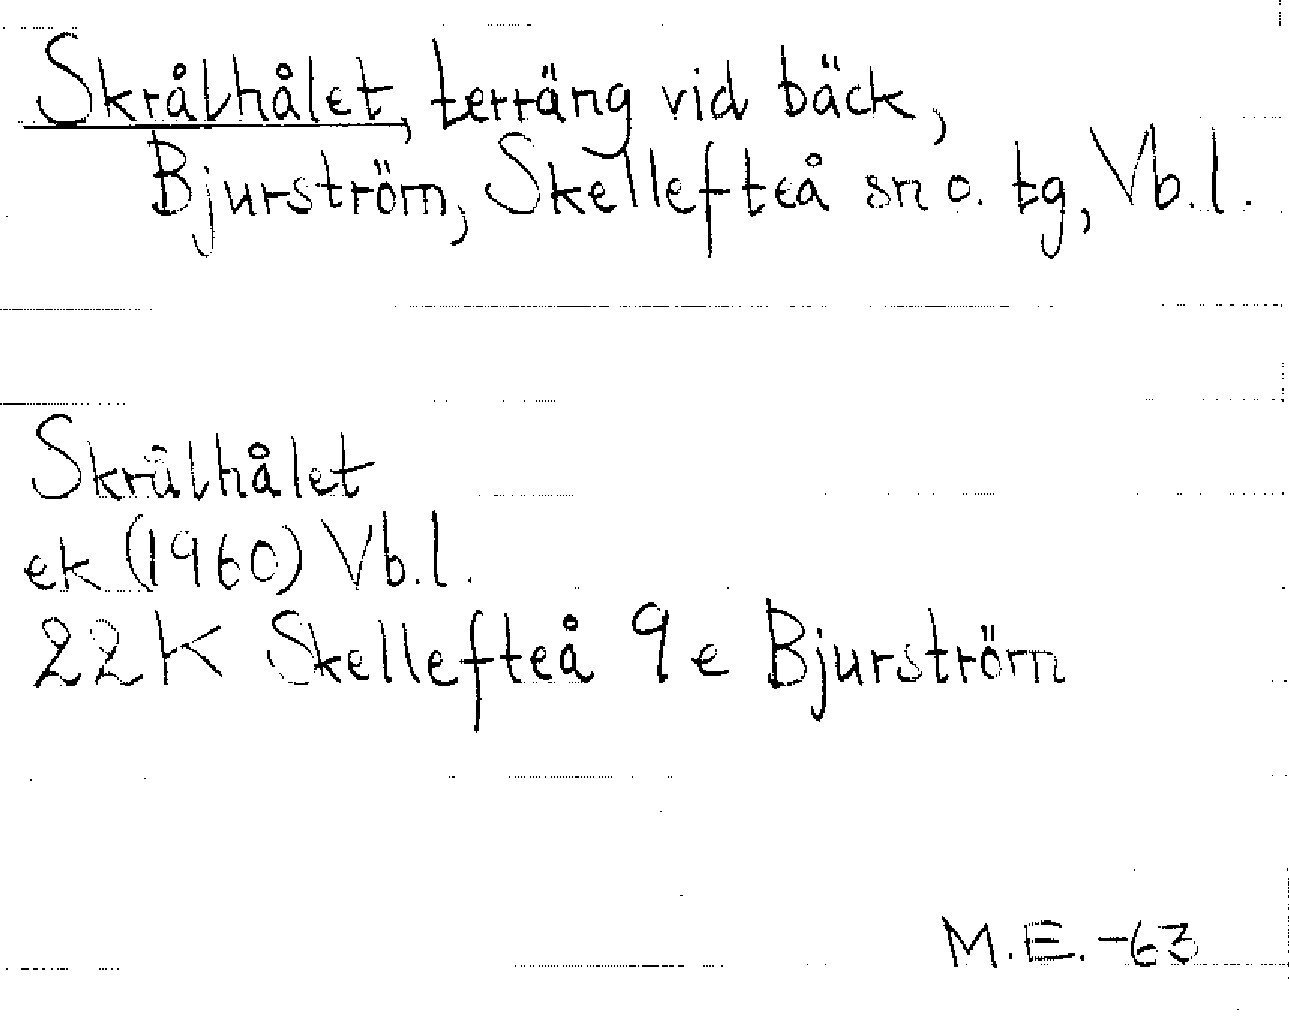 Skrålhålet, terräng vid bäck,
Bjurström, Skellefteå sn o. tg, Vb.l.
Skrålhålet
ek (1960) Vb.l.
22K Skellefteå 9e Bjurström
M.E.-63